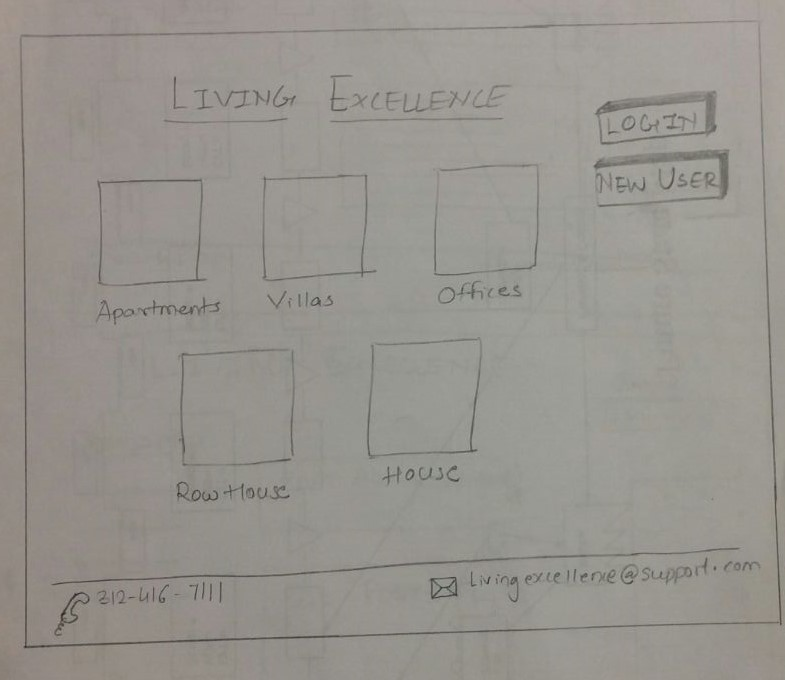 LIVING EXCELLENCE
LOGIN
NEW USER
Apartments Villas Offices
Row House House
312-416-7111 livingexcellence@support.com